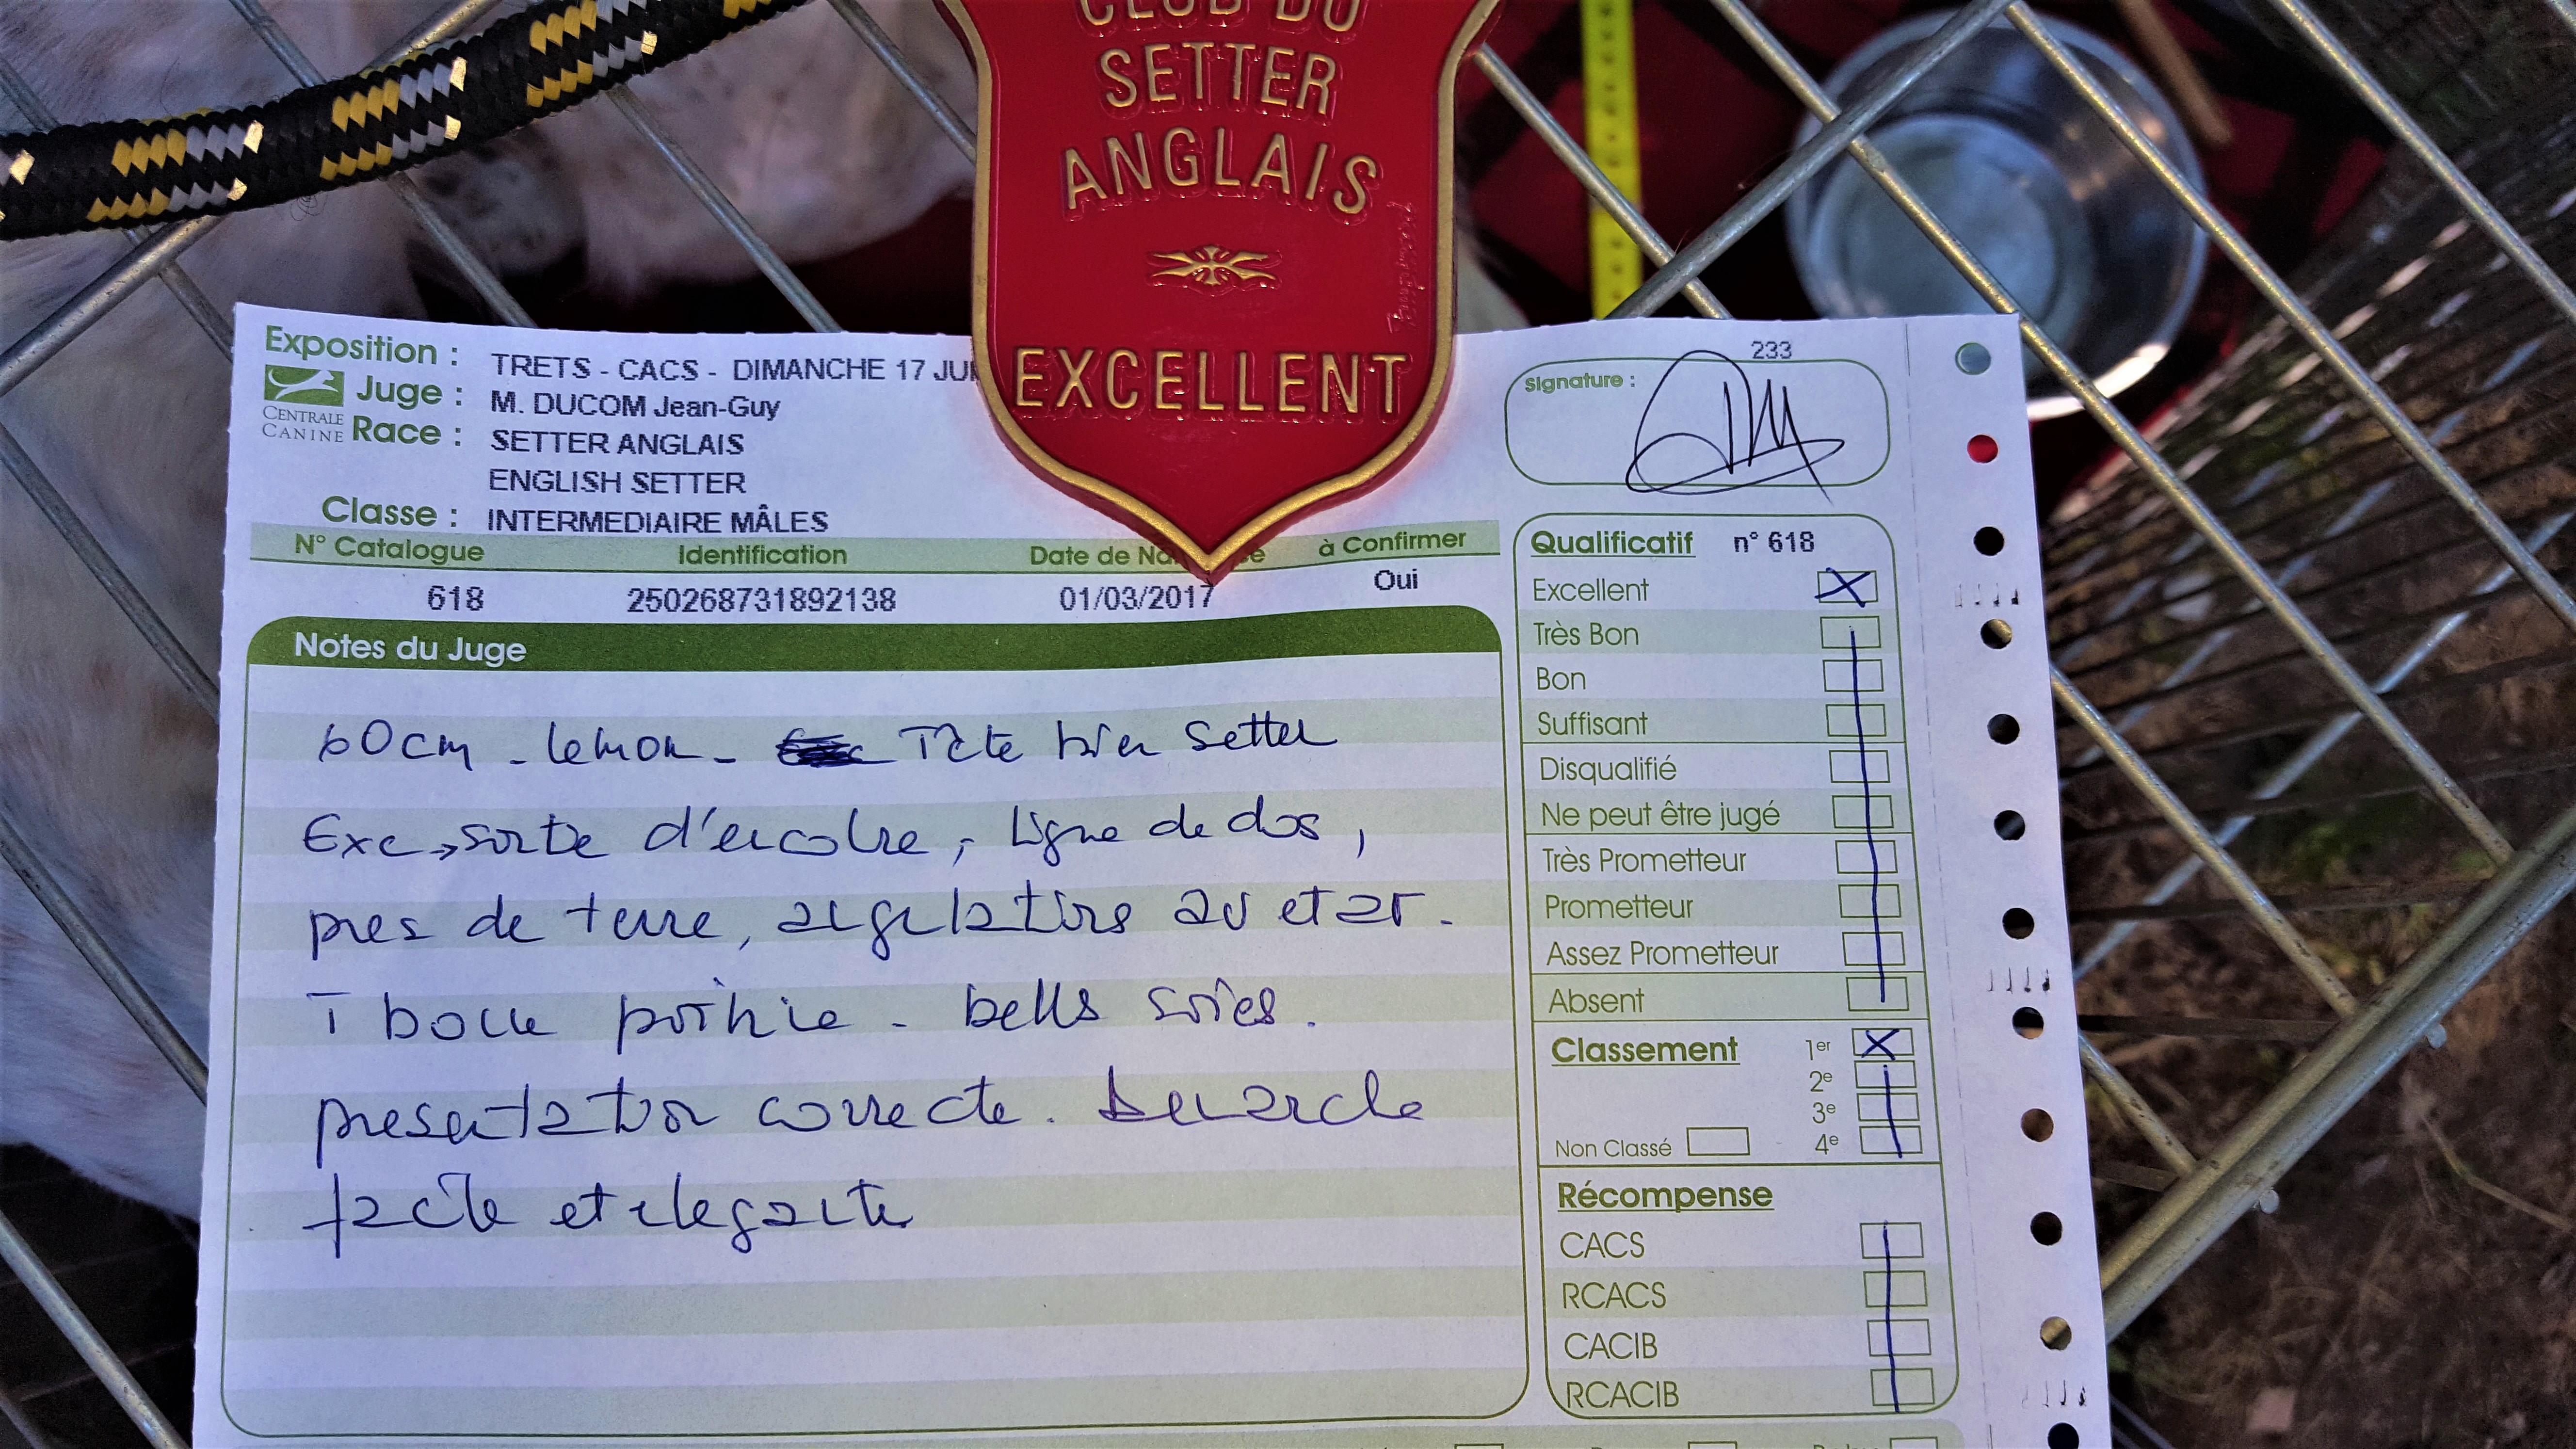 CLUB DU
SETTER
ANGLAIS
EXCELLENT
Exposition : TRETS - CACS - DIMANCHE 17 JUI
CENTRALE
CANINE
Juge : M. DUCOM Jean-Guy
Race : SETTER ANGLAIS
ENGLISH SETTER
Classe : INTERMEDIAIRE MÂLES
233
signature :
N° Catalogue Identification Date de Na e à Confirmer
618 250268731892138 01/03/2017 Oui
Notes du Juge
60cm - lemon - Tête bien setter
Exc → sortie d'encolure, ligne de dos,
pres de terre, angulations av et ar.
T bonne poitrine - belles soies.
presentation correcte. Demarche
facile et elegante
Qualificatif n° 618
Excellent X
Très Bon
Bon
Suffisant
Disqualifié
Ne peut être jugé
Très Prometteur
Prometteur
Assez Prometteur
Absent
Classement 1er X
2e
3e
Non Classé 4e
Récompense
CACS
RCACS
CACIB
RCACIB